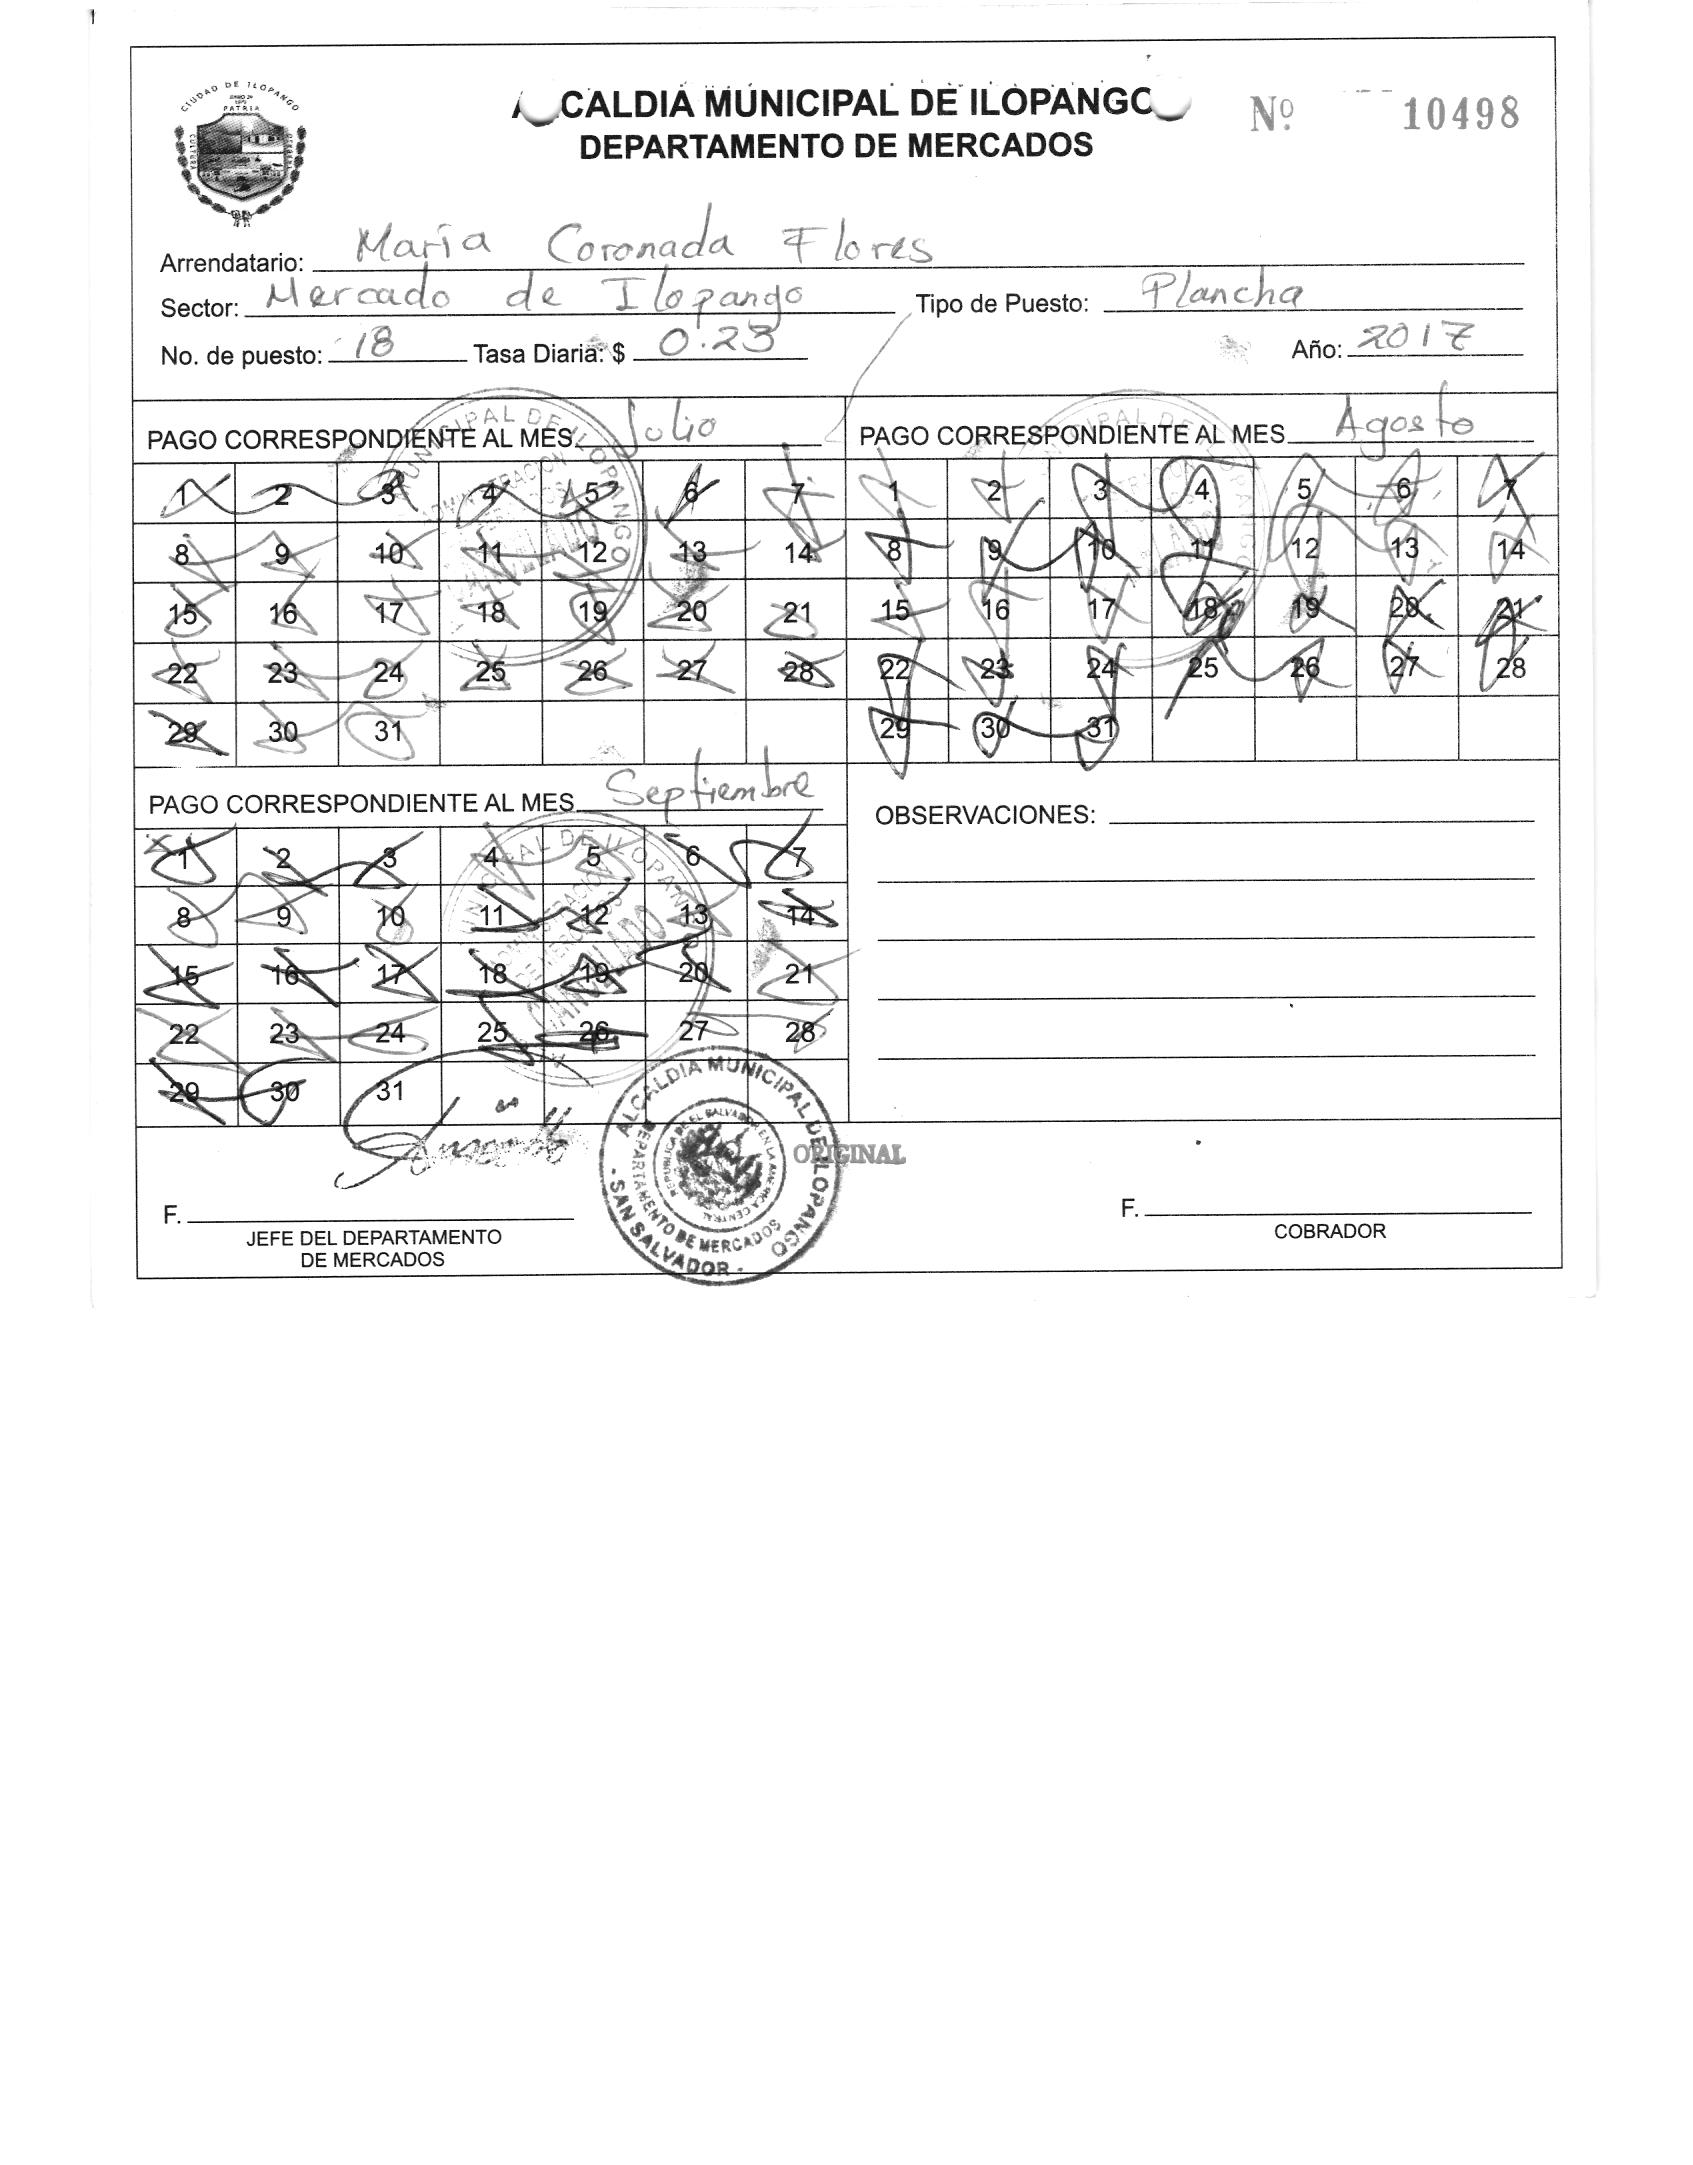 CIUDAD DE ILOPANGO
PATRIA
ALCALDIA MUNICIPAL DE ILOPANGO
DEPARTAMENTO DE MERCADOS
Nº 10498
Arrendatario: María Coronada Flores
Sector: Mercado de Ilopango Tipo de Puesto: Plancha
No. de puesto: 18 Tasa Diaria: $ 0.23 Año: 2017
PAGO CORRESPONDIENTE AL MES Julio
1 2 3 4 5 6 7
8 9 10 11 12 13 14
15 16 17 18 19 20 21
22 23 24 25 26 27 28
29 30 31
PAGO CORRESPONDIENTE AL MES Agosto
1 2 3 4 5 6 7
8 9 10 11 12 13 14
15 16 17 18 19 20 21
22 23 24 25 26 27 28
29 30 31
PAGO CORRESPONDIENTE AL MES Septiembre
1 2 3 4 5 6 7
8 9 10 11 12 13 14
15 16 17 18 19 20 21
22 23 24 25 26 27 28
29 30 31
OBSERVACIONES:
ALCALDIA MUNICIPAL DE ILOPANGO
DEPARTAMENTO DE MERCADOS
REPUBLICA DE EL SALVADOR EN LA AMERICA CENTRAL
- SAN SALVADOR -
ORIGINAL
F.
JEFE DEL DEPARTAMENTO
DE MERCADOS
F.
COBRADOR